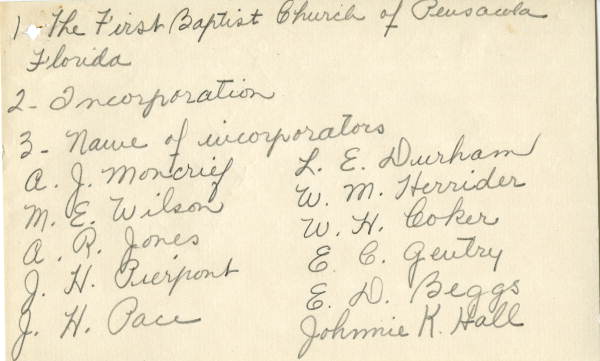 1 - The First Baptist Church of Pensacola
Florida
2 - Incorporation
3 - Name of incorporators
A. J. Moncrief
M. E. Wilson
A. R. Jones
J. H. Pierpont
J. H. Pace
L. E. Durham
W. M. Herrider
W. H. Coker
E. C. Gentry
E. D. Beggs
Johnnie K. Hall